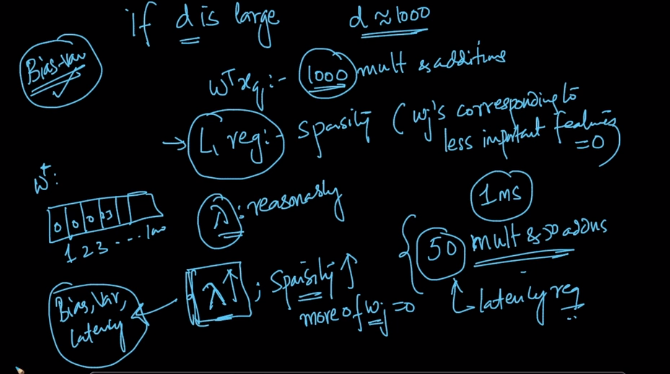 if d is large d ≈ 1000
Bias-Var
wᵀxq:- 1000 mult & additions
→ L1 reg:- Sparsity ( wj's corresponding to
less important features
=0 )
w*:
0 0 0
1 2 3 ....
λ : reasonably
1ms
50 mult & 50 addns
latency req
λ↑ ; Sparsity ↑
more of wj=0
Bias, Var,
latency